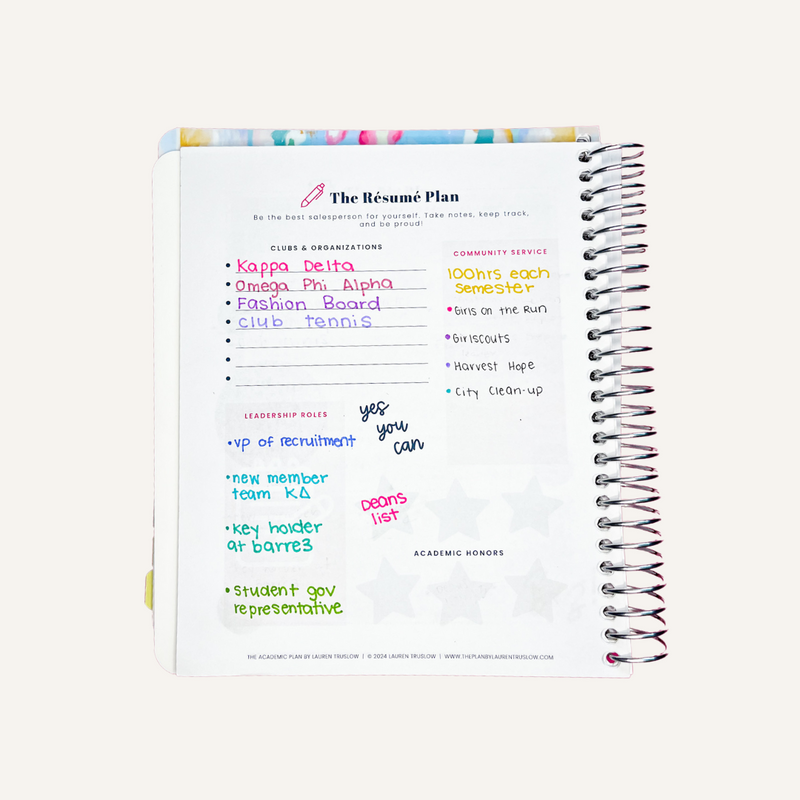 The Résumé Plan
Be the best salesperson for yourself. Take notes, keep track,
and be proud!
CLUBS & ORGANIZATIONS
• Kappa Delta
• Omega Phi Alpha
• Fashion Board
• club tennis
•
•
•
COMMUNITY SERVICE
100hrs each
semester
• Girls on the Run
• Girlscouts
• Harvest Hope
• City Clean-up
LEADERSHIP ROLES
• vp of recruitment
• new member
team KΔ
• key holder
at barre3
• student gov
representative
yes
you
can
Deans
list
ACADEMIC HONORS
THE ACADEMIC PLAN BY LAUREN TRUSLOW | © 2024 LAUREN TRUSLOW | WWW.THEPLANBYLAURENTRUSLOW.COM